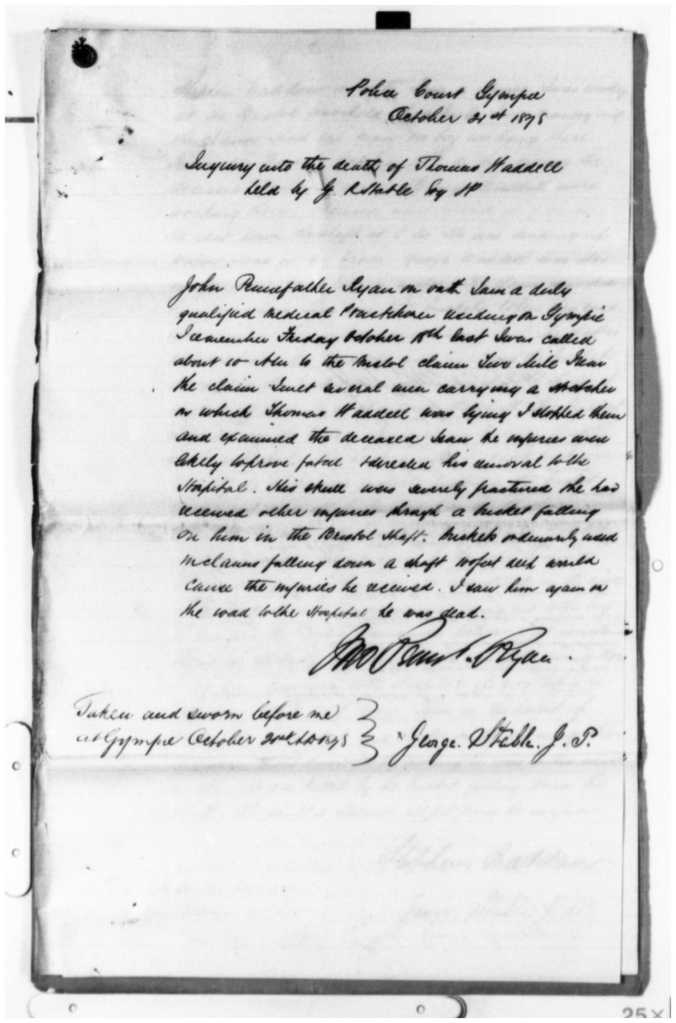 Police Court Gympie
October 21st 1878
Inquiry into the death of Thomas Waddell
held by G Stable Esq JP
John Pennefather Ryan on oath I am a duly
qualified medical Practitioner residing on Gympie
I remember Friday October 18th last I was called
about 10 AM to the Bristol claim Two Mile Near
the claim I met several men carrying a stretcher
on which Thomas Waddell was lying I stopped them
and examined the deceased I saw he injuries were
likely to prove fatal & directed his removal to the
Hospital. His skull was severely fractured & he had
received other injuries through a bucket falling
on him in the Bristol Shaft. Buckets ordinarily used
in claims falling down a shaft feet deep would
cause the injuries he received. I saw him again on
the road to the Hospital he was dead.
Jno Ryan.
Taken and sworn before me
at Gympie October 1878
George. Stable. J. P.
25X